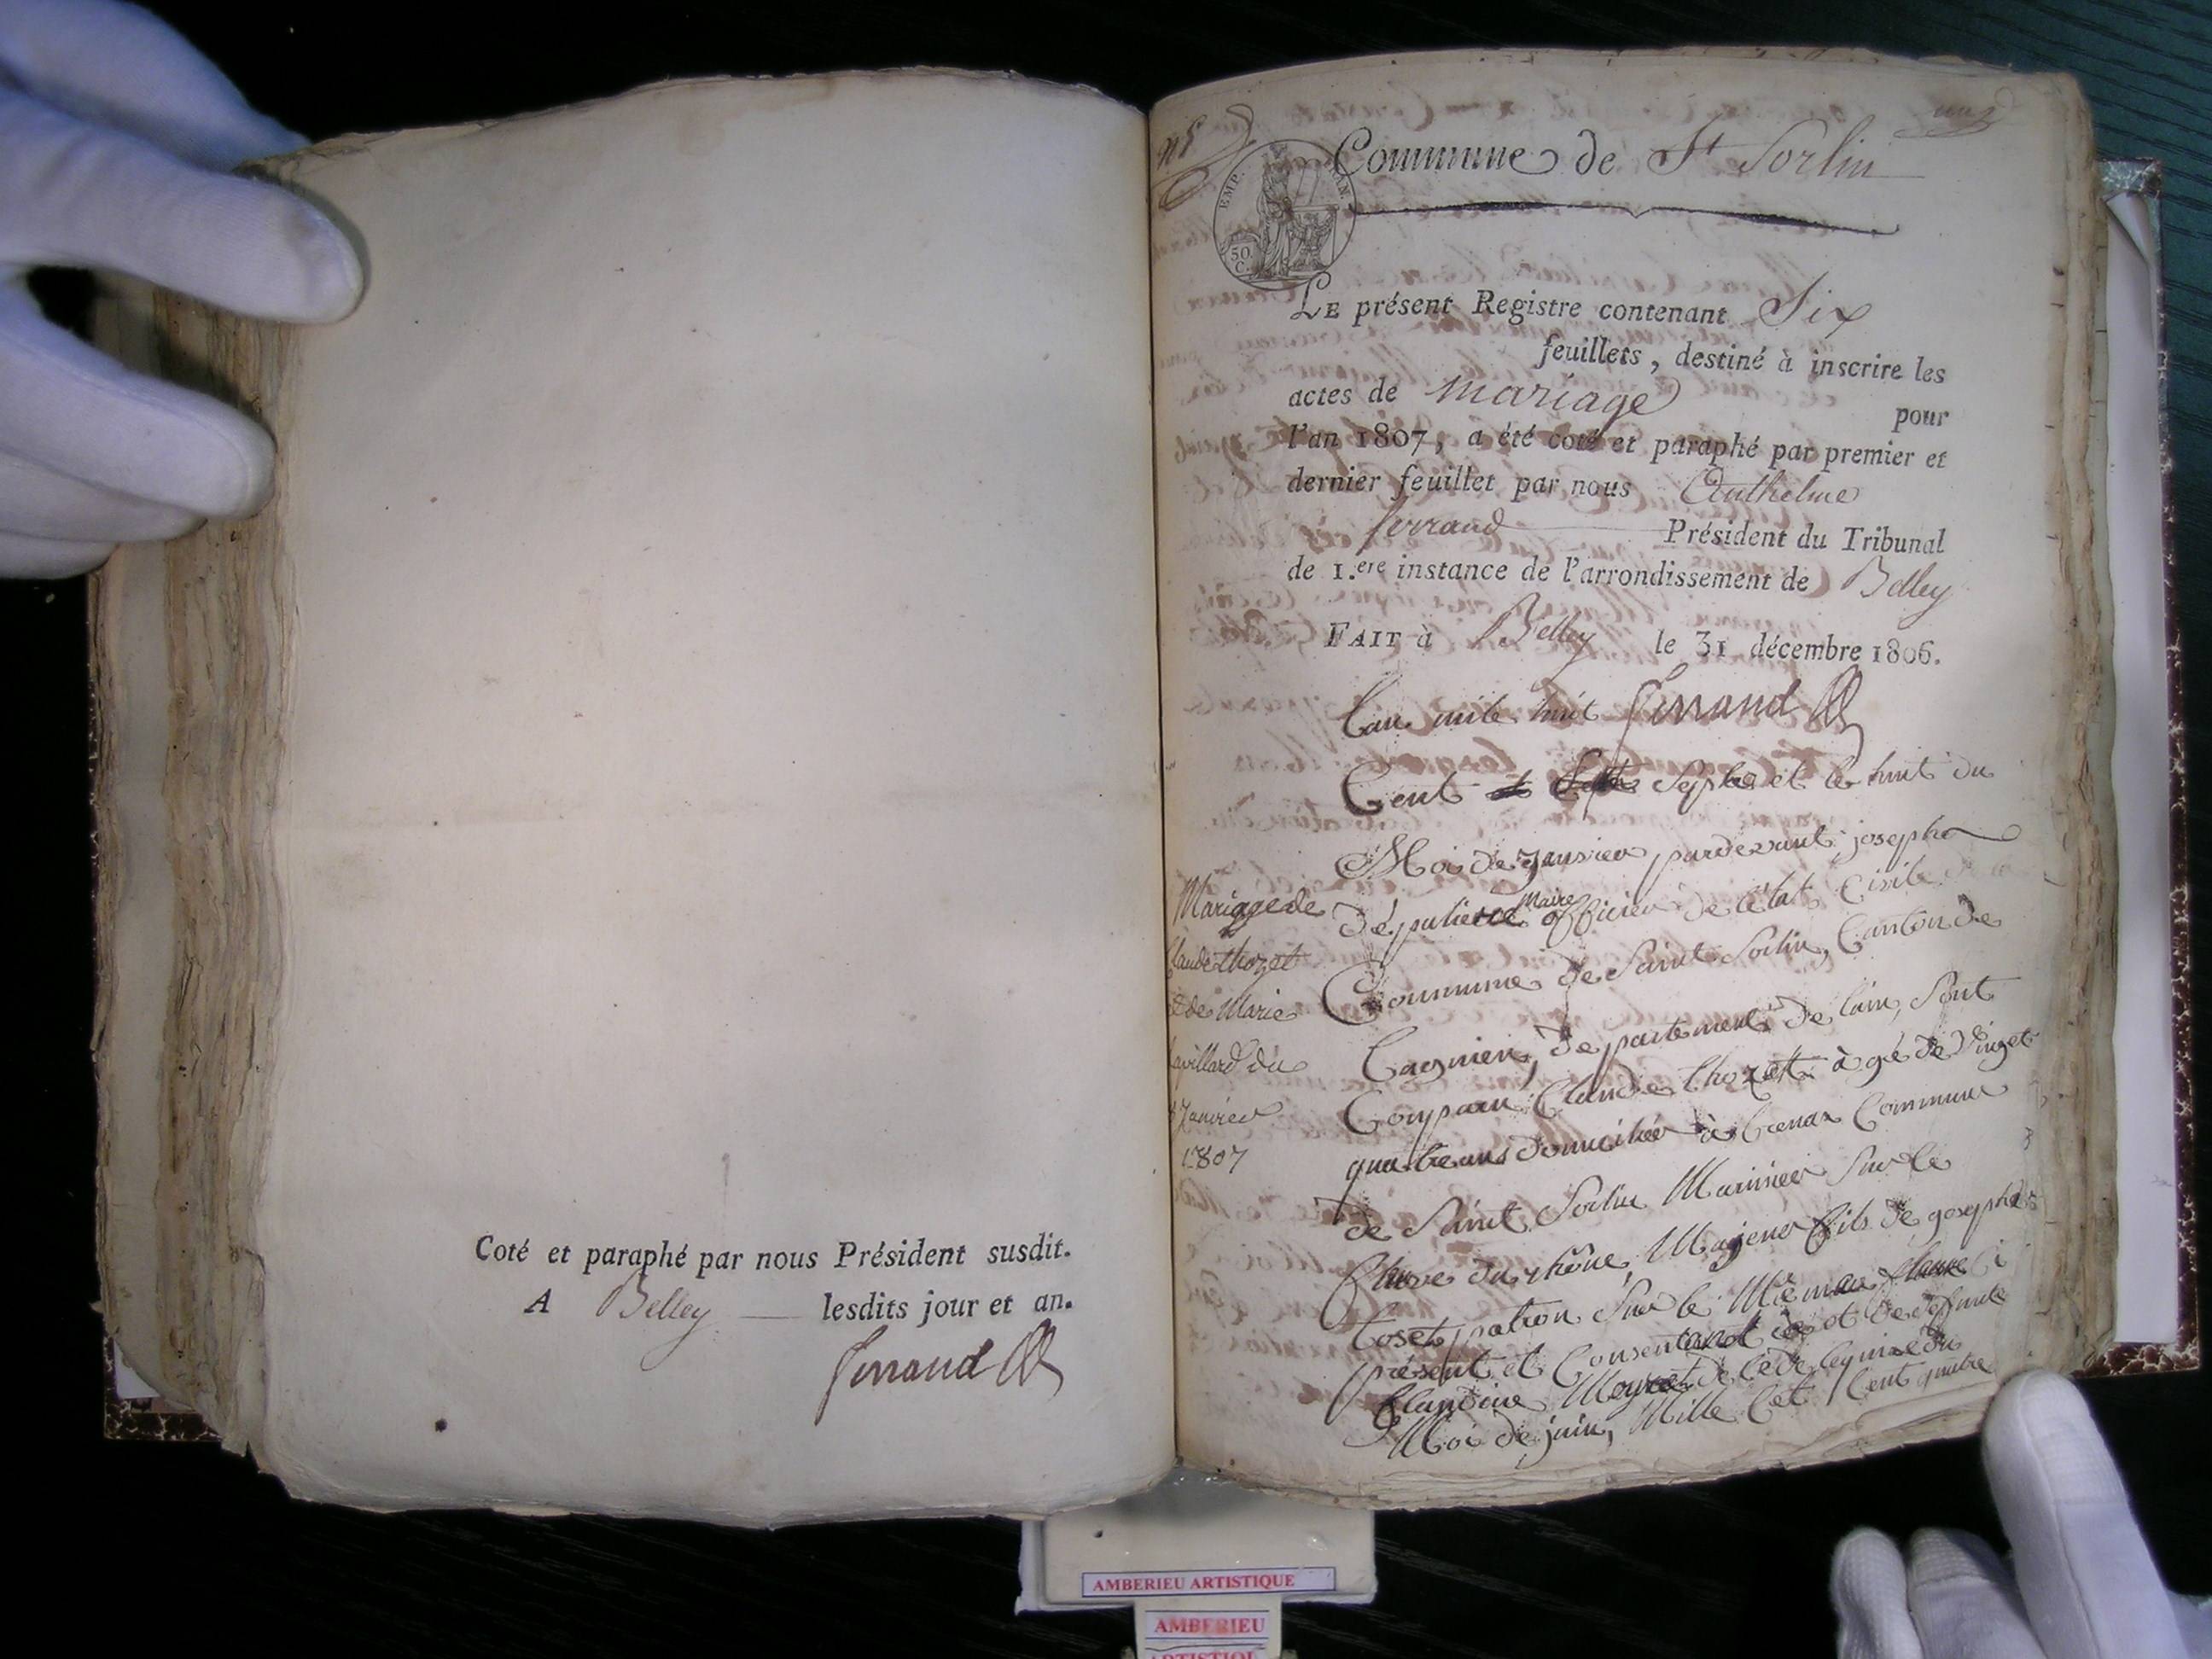 Coté et paraphé par nous Président susdit.
A Belley lesdits jour et an.
Ferrand
n 8
un
Commune de St Sorlin
EMP.
50
C.
LE présent Registre contenant Six
feuillets, destiné à inscrire les
actes de mariage pour
l'an 1807, a été coté et paraphé par premier et
dernier feuillet par nous Anthelme
ferrand Président du Tribunal
de 1.ere instance de l'arrondissement de Belley
FAIT à Belley le 31 décembre 1806.
Ferrand
Mariage de
Claude thozet
et de Marie
du
8 Janvier
1807
Lan mile huit
Cent Septe et le huit du
Moi de Janvier, pardevant joseph
Maire officier de létat Civile
Commune de Saint Sorlin, Canton de
Lagnieu, département de lain, Sont
Comparu Claude thozet à gé de vinget
quatre ans domicilié à Commune
de Saint Sorlin Marinier Sur le
fleuve du rhône, Majeur fils de joseph
toset patron Sur le Mêmae fleauve
présent et Consentant et de defunte
Claudine de le
Moi de juin, Mille Cet Cent quatre
AMBERIEU ARTISTIQUE
AMBERIEU
ARTISTIQUE